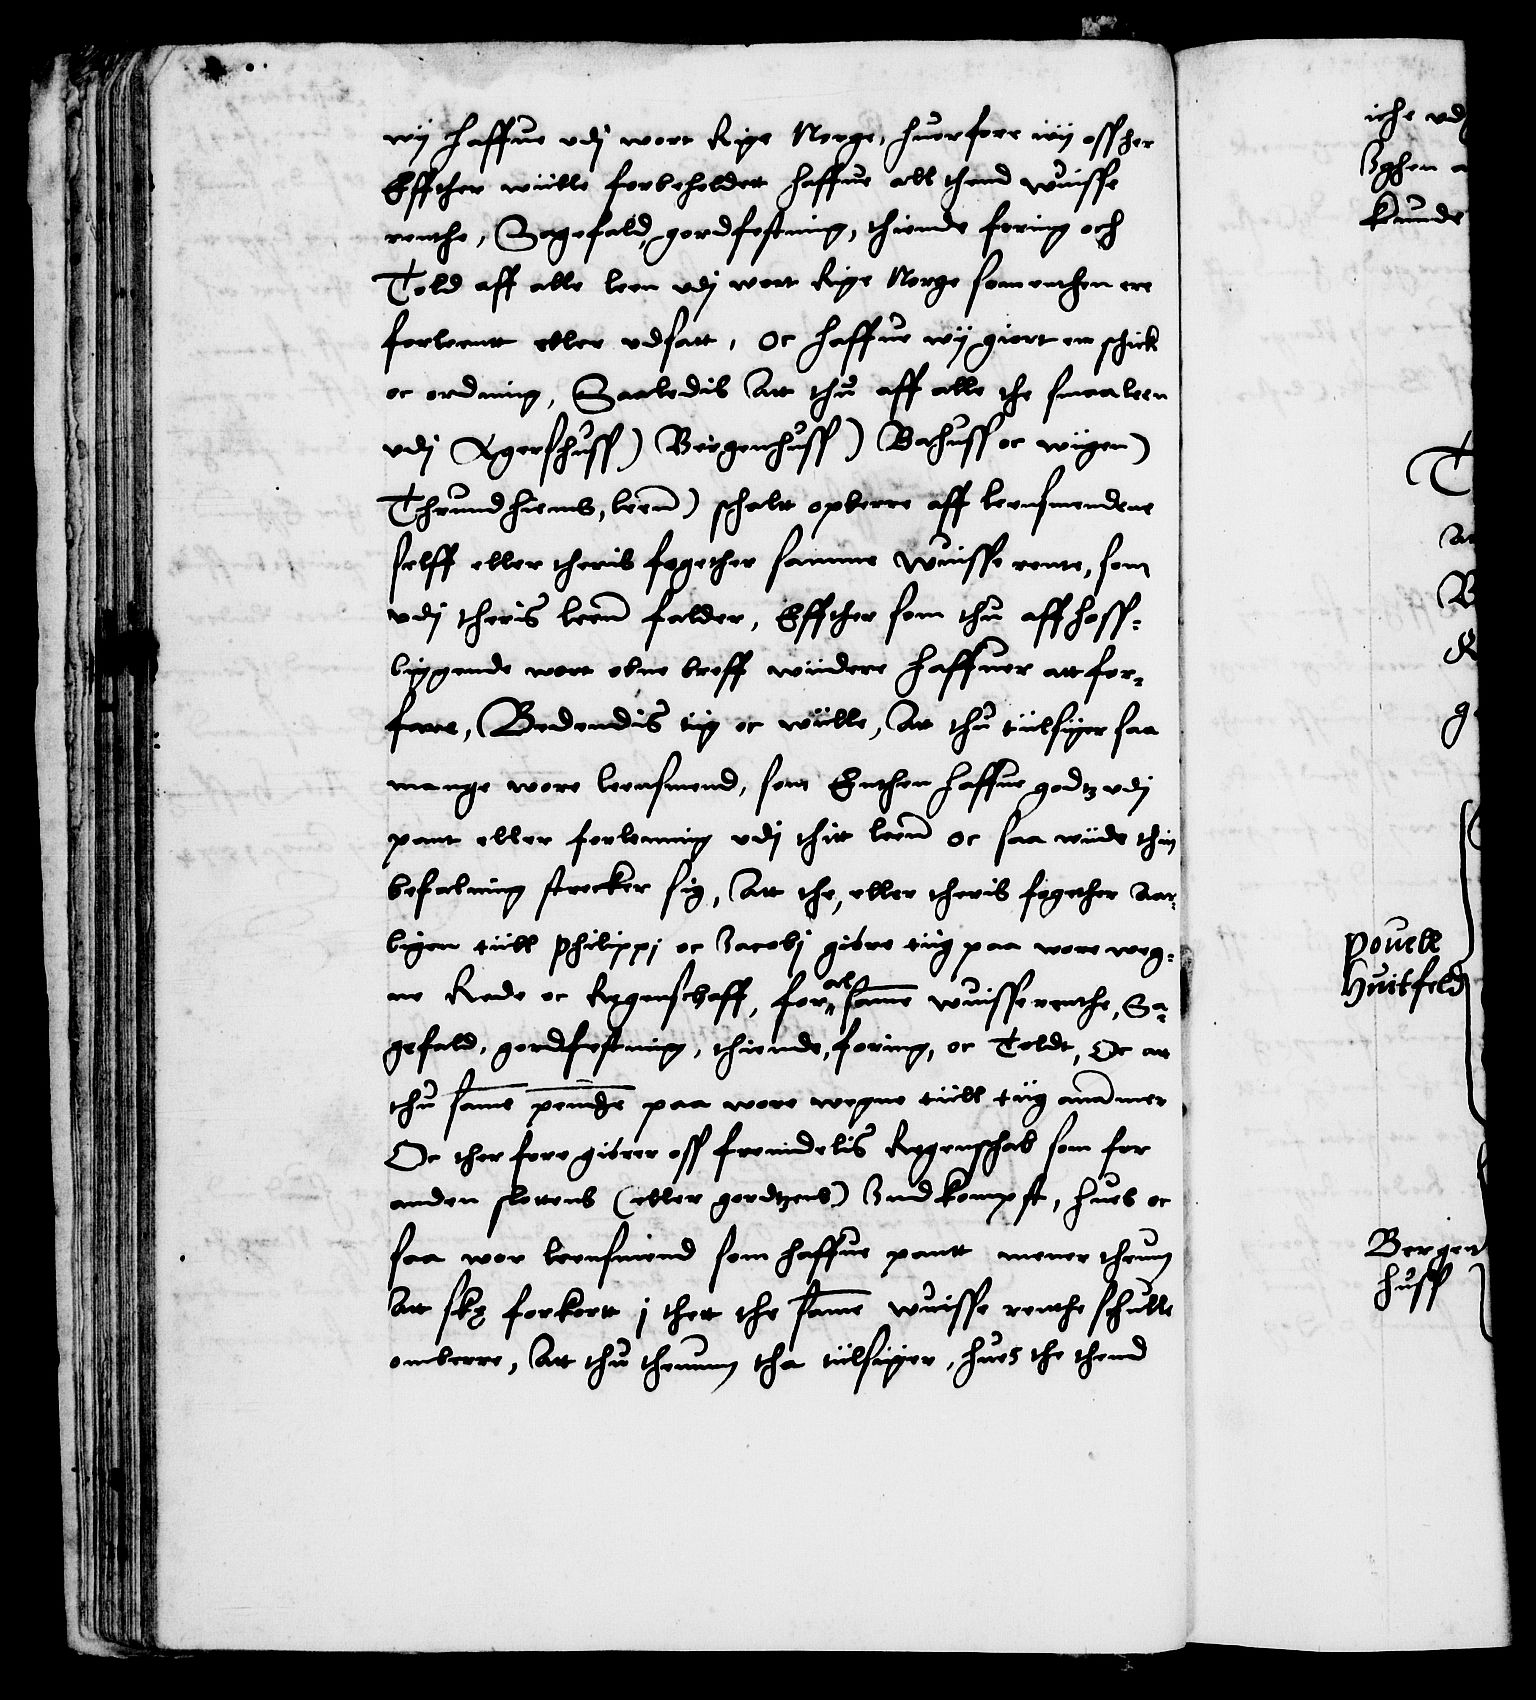 wij haffue vdj wort Rige Norge, huorfore wij oss her
Effther wiille forbeholdet haffue all thend wuisse
renthe, Sagefald, gordfestning, thiende foring och
Told aff alle leen vdj wort Rige Norge som enthen ere
forlentt eller vdsatt, Oc haffue wij giort en schick
oc ordning, Saaledis Att thu aff alle the smaa leen
vdj Agershuss) Bergenhuss) Bahuss oc wigen)
Thrundhiems, leen) schalt opberre aff leensmendene
selff eller theris fogether samme wuisse rente, som
vdj theris leen falder, Effther som thu aff hoss-
liggende wort obne breff wiidere haffuer att for-
fare, Bedendis tig oc wiille, At thu tiilsiger saa
mange wore leensmend, som Enthen haffue godtz vdj
pant eller forlenning vdj thitt leen oc saa wiide thin
befalning strecker sig, Att the, eller theris fogether aar-
ligen tiill Philippi oc Jacobj giøre tiig paa wore weg-
ne Rede oc Regenschaff, for al same wuisse renthe, Sa-
gefald, gordfestning, thiende, foring, oc Toldt, Oc at
thu same peninge paa wore wegne tiill tiig anamer
Oc ther fore giører oss fremdelis Regenschab som for
anden slottens (eller gordtzens) Indkompst, hues oc
saa wor leensmend som haffue pantt mener thenom
Att ske forkortt j thet the same wuisse renthe schulle
omberre, Att thu thennom tha tiilsiger, hues the thend
iche vdj
Jghen
kunde
Pouell
Huitfeld
Bergen
huss